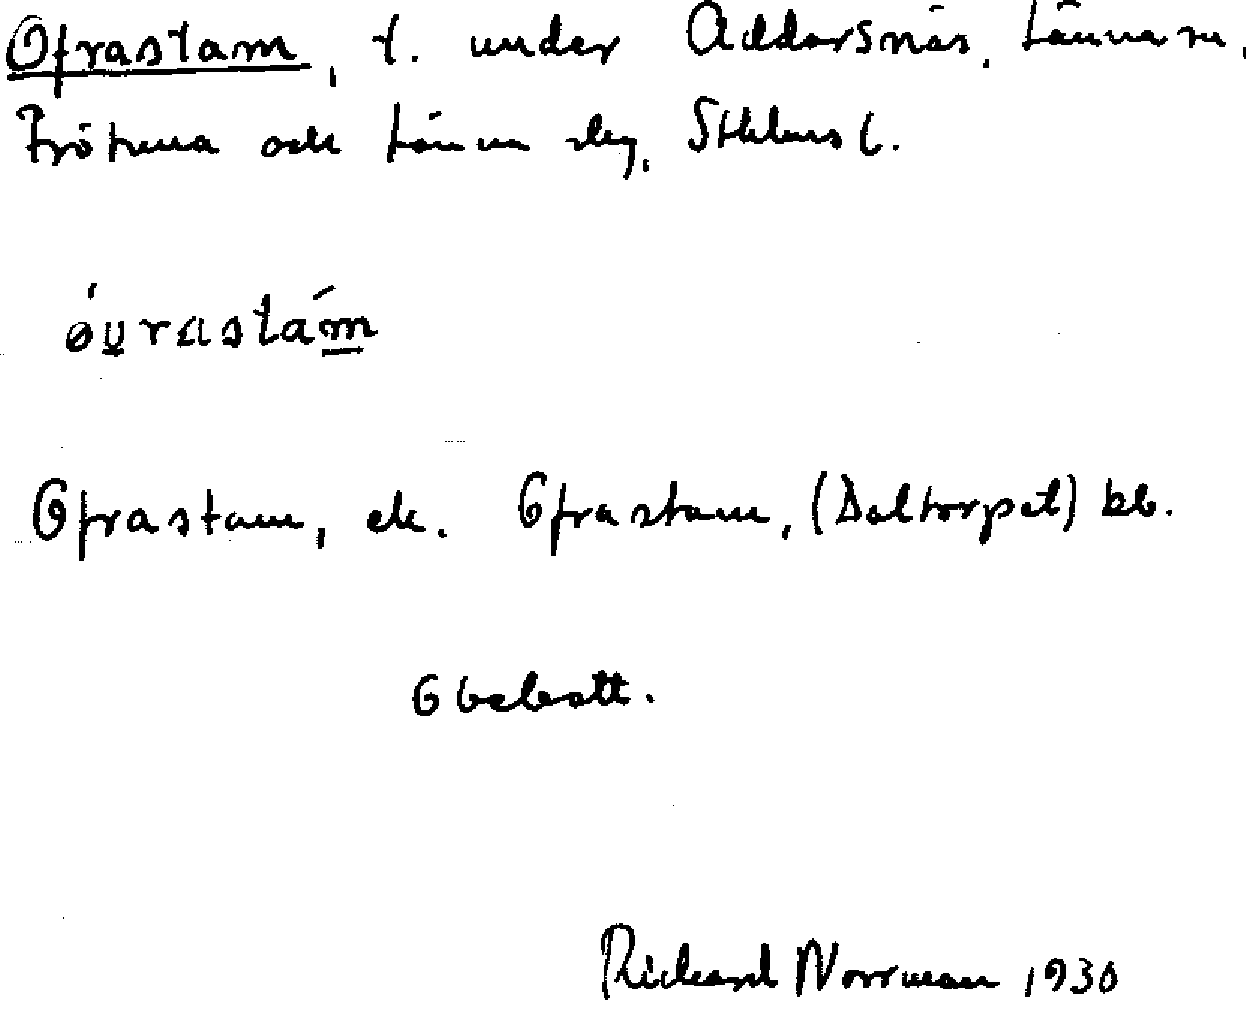 Ofrastam, t. under Addarsnäs, Länna sn,
Frötuna och Länna skg, Sthlms l.
óvrastám
Ofrastam, ek. Ofrastam, (Daltorpet) kb.
Obebott.
Richard Norrman 1930